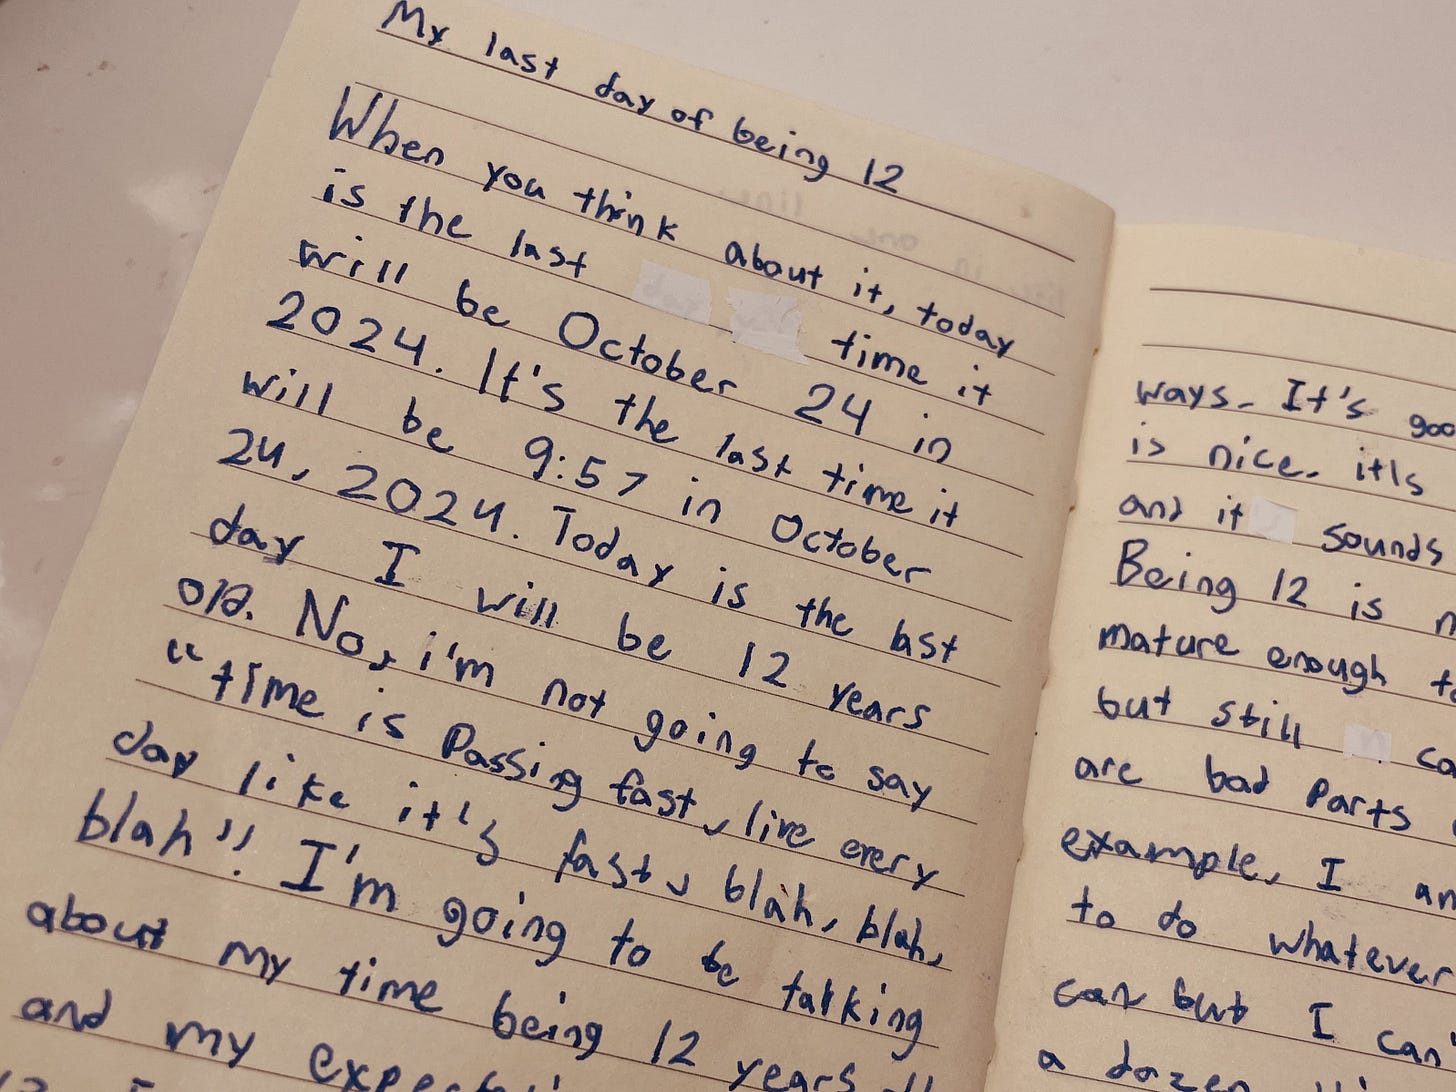 My last day of being 12
When you think about it, today
is the last time it
will be October 24 in
2024. It's the last time it
will be 9:57 in October
24, 2024. Today is the last
day I will be 12 years
old. No, i'm not going to say
“time is Passing fast, live every
day like it's fast, blah, blah,
blah". I'm going to be talking
about my time being 12 years
and my
ways. It's
is nice. it's
and it sounds
Being 12 is
mature enough
but still
are bad Parts
example, I
to do whatever
can but I can'
a